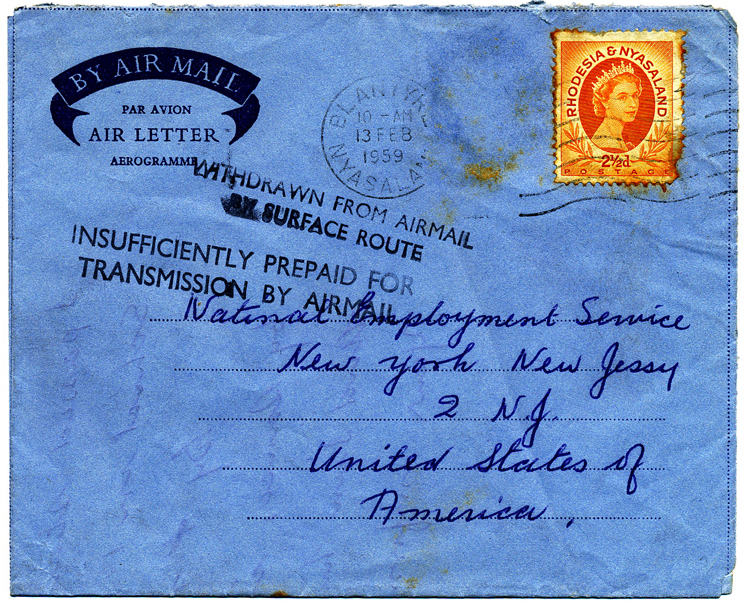 BY AIR MAIL
PAR AVION
AIR LETTER
AEROGRAMME
BLANTYRE
10 - AM
13 FEB
1959
NYASALAND
RHODESIA & NYASALAND
2½d
POSTAGE
WITHDRAWN FROM AIRMAIL
BY SURFACE ROUTE
INSUFFICIENTLY PREPAID FOR
TRANSMISSION BY AIRMAIL
National Employment Service
New York New Jessy
2 N.J.
United States of
America,